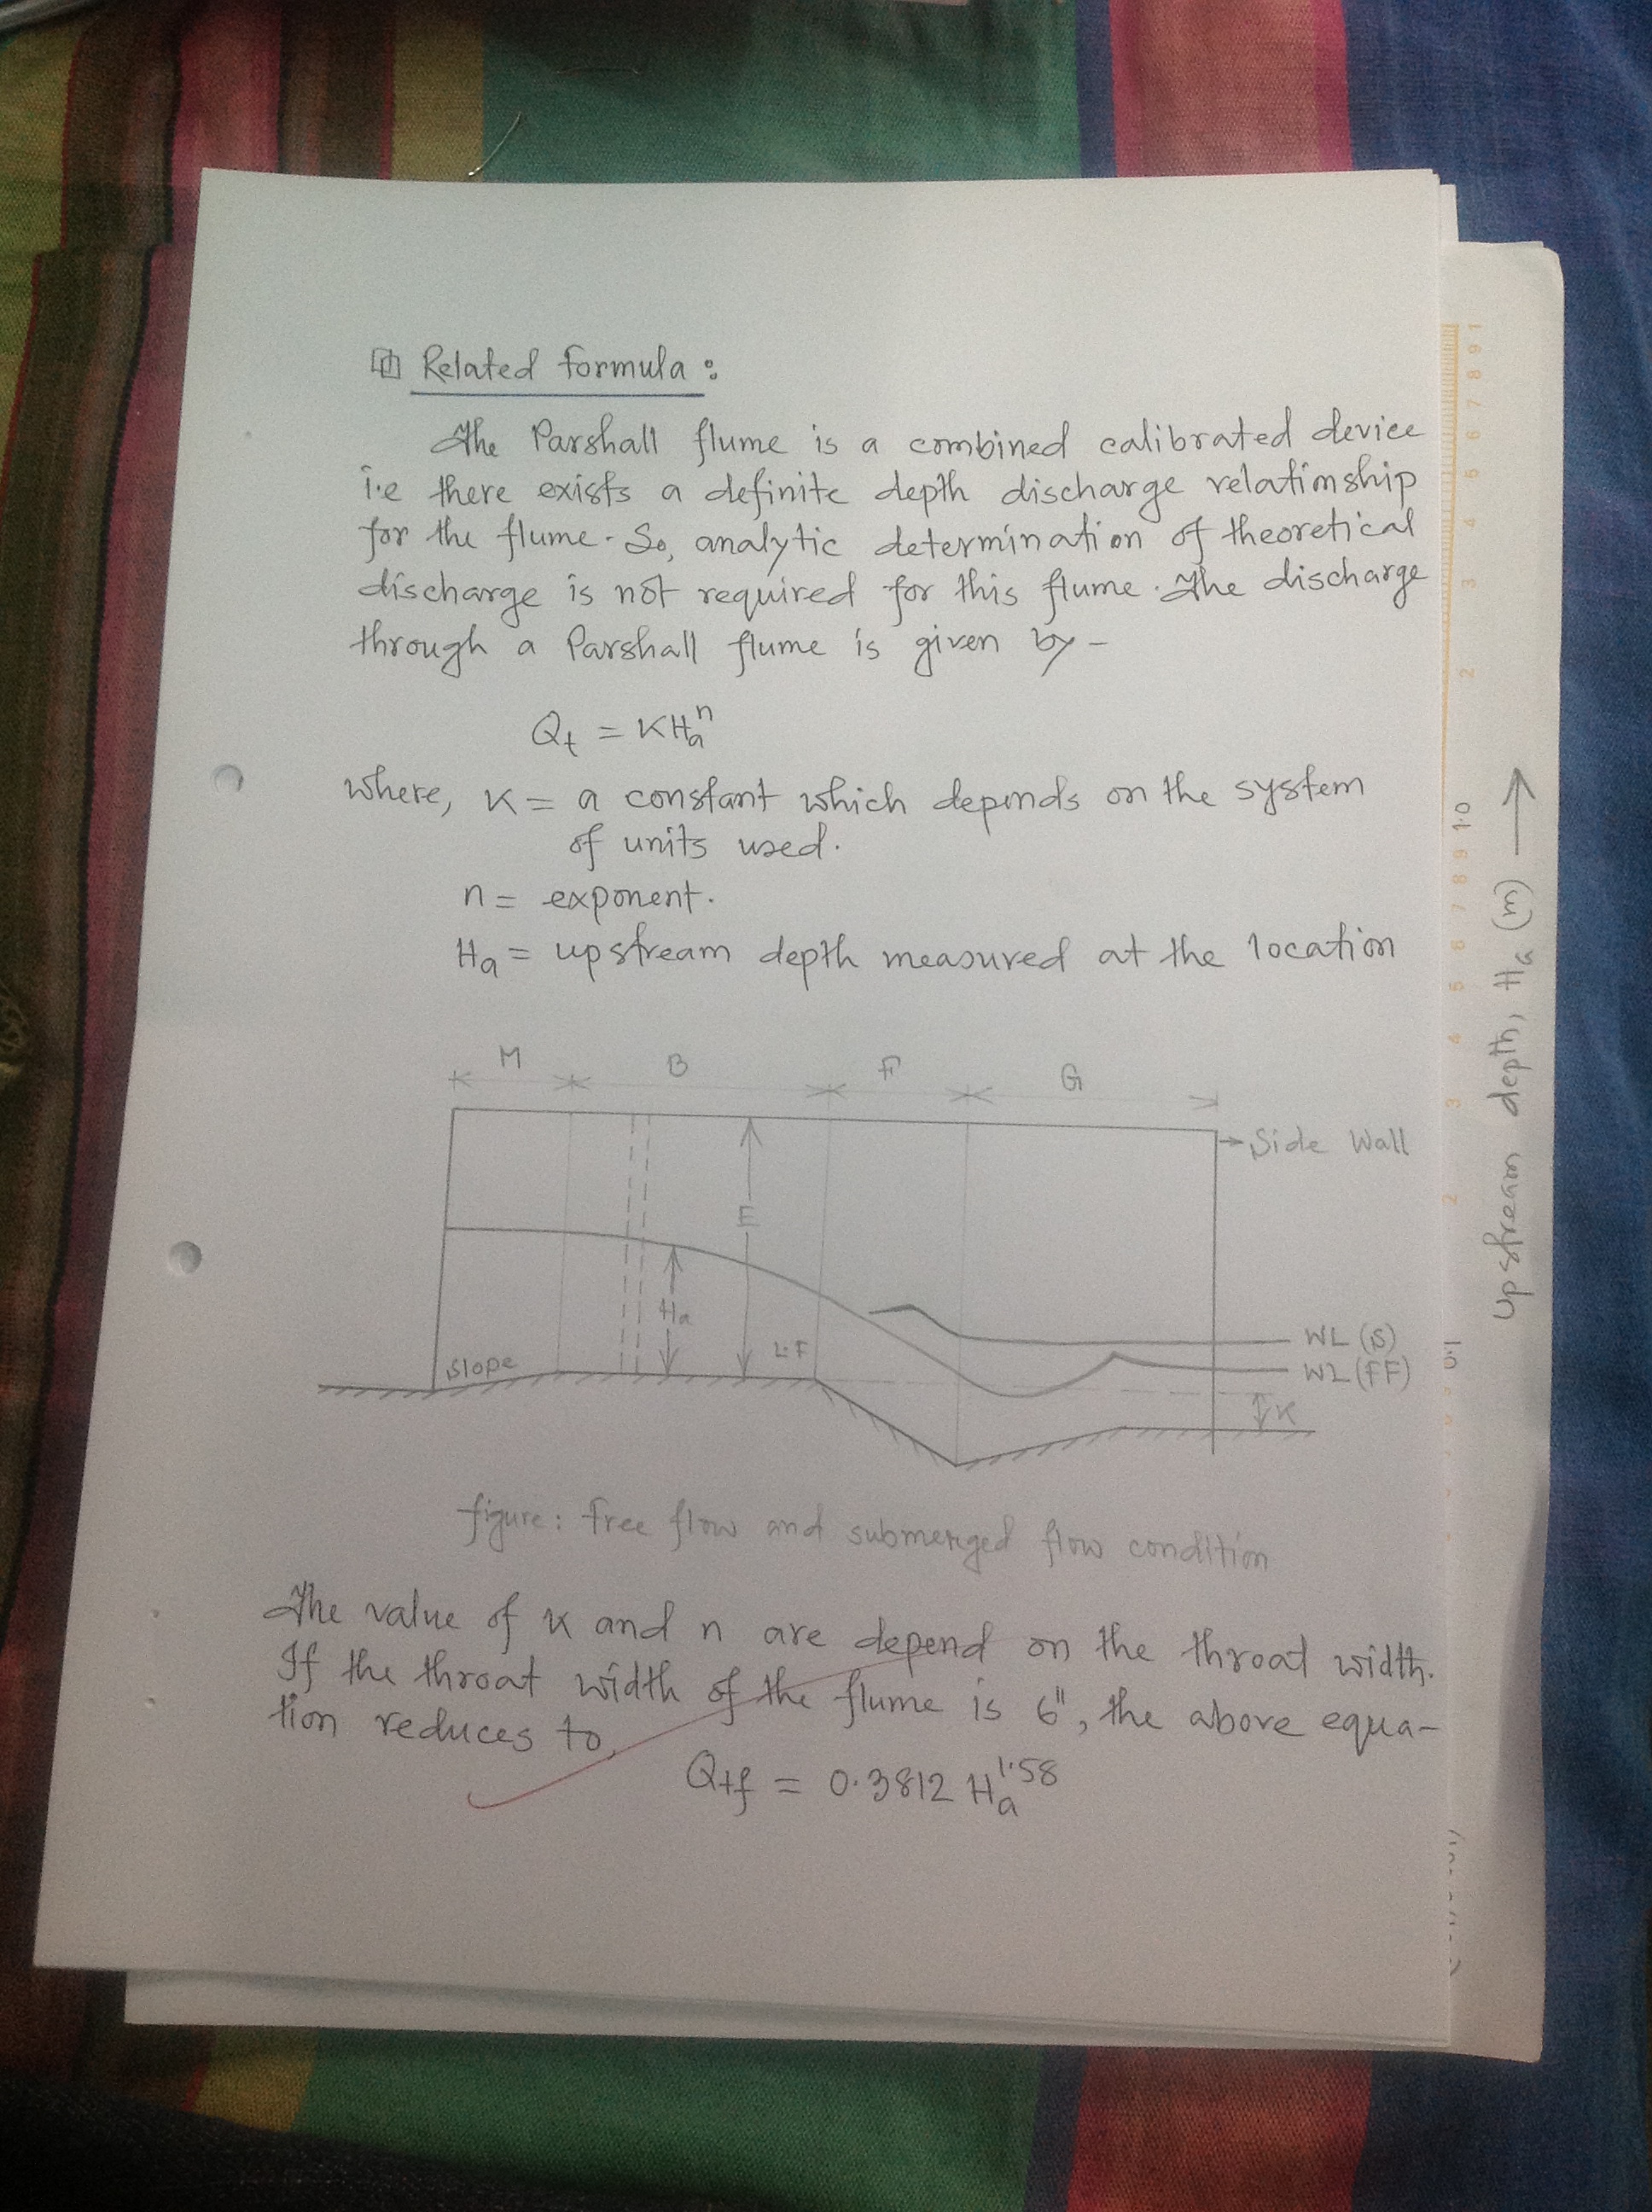 Related formula:
The Parshall flume is a combined calibrated device
i.e there exists a definite depth discharge relationship
for the flume. So, analytic determination of theoretical
discharge is not required for this flume. The discharge
through a Parshall flume is given by -
Qt = KHa^n
where, K = a constant which depends on the system
of units used.
n = exponent.
Ha = upstream depth measured at the location
M B F G
Side Wall
E
Ha
L.F
Slope
WL (S)
WL (FF)
K
figure: free flow and submerged flow condition
The value of K and n are depend on the throat width.
If the throat width of the flume is 6", the above equa-
tion reduces to,
Qtf = 0.3812 Ha^1.58
Upstream depth, Ha (m) →
1 9 8 7 6 5 4 3 2
1.0 9 8 7 6 5 4 3 2
0.1